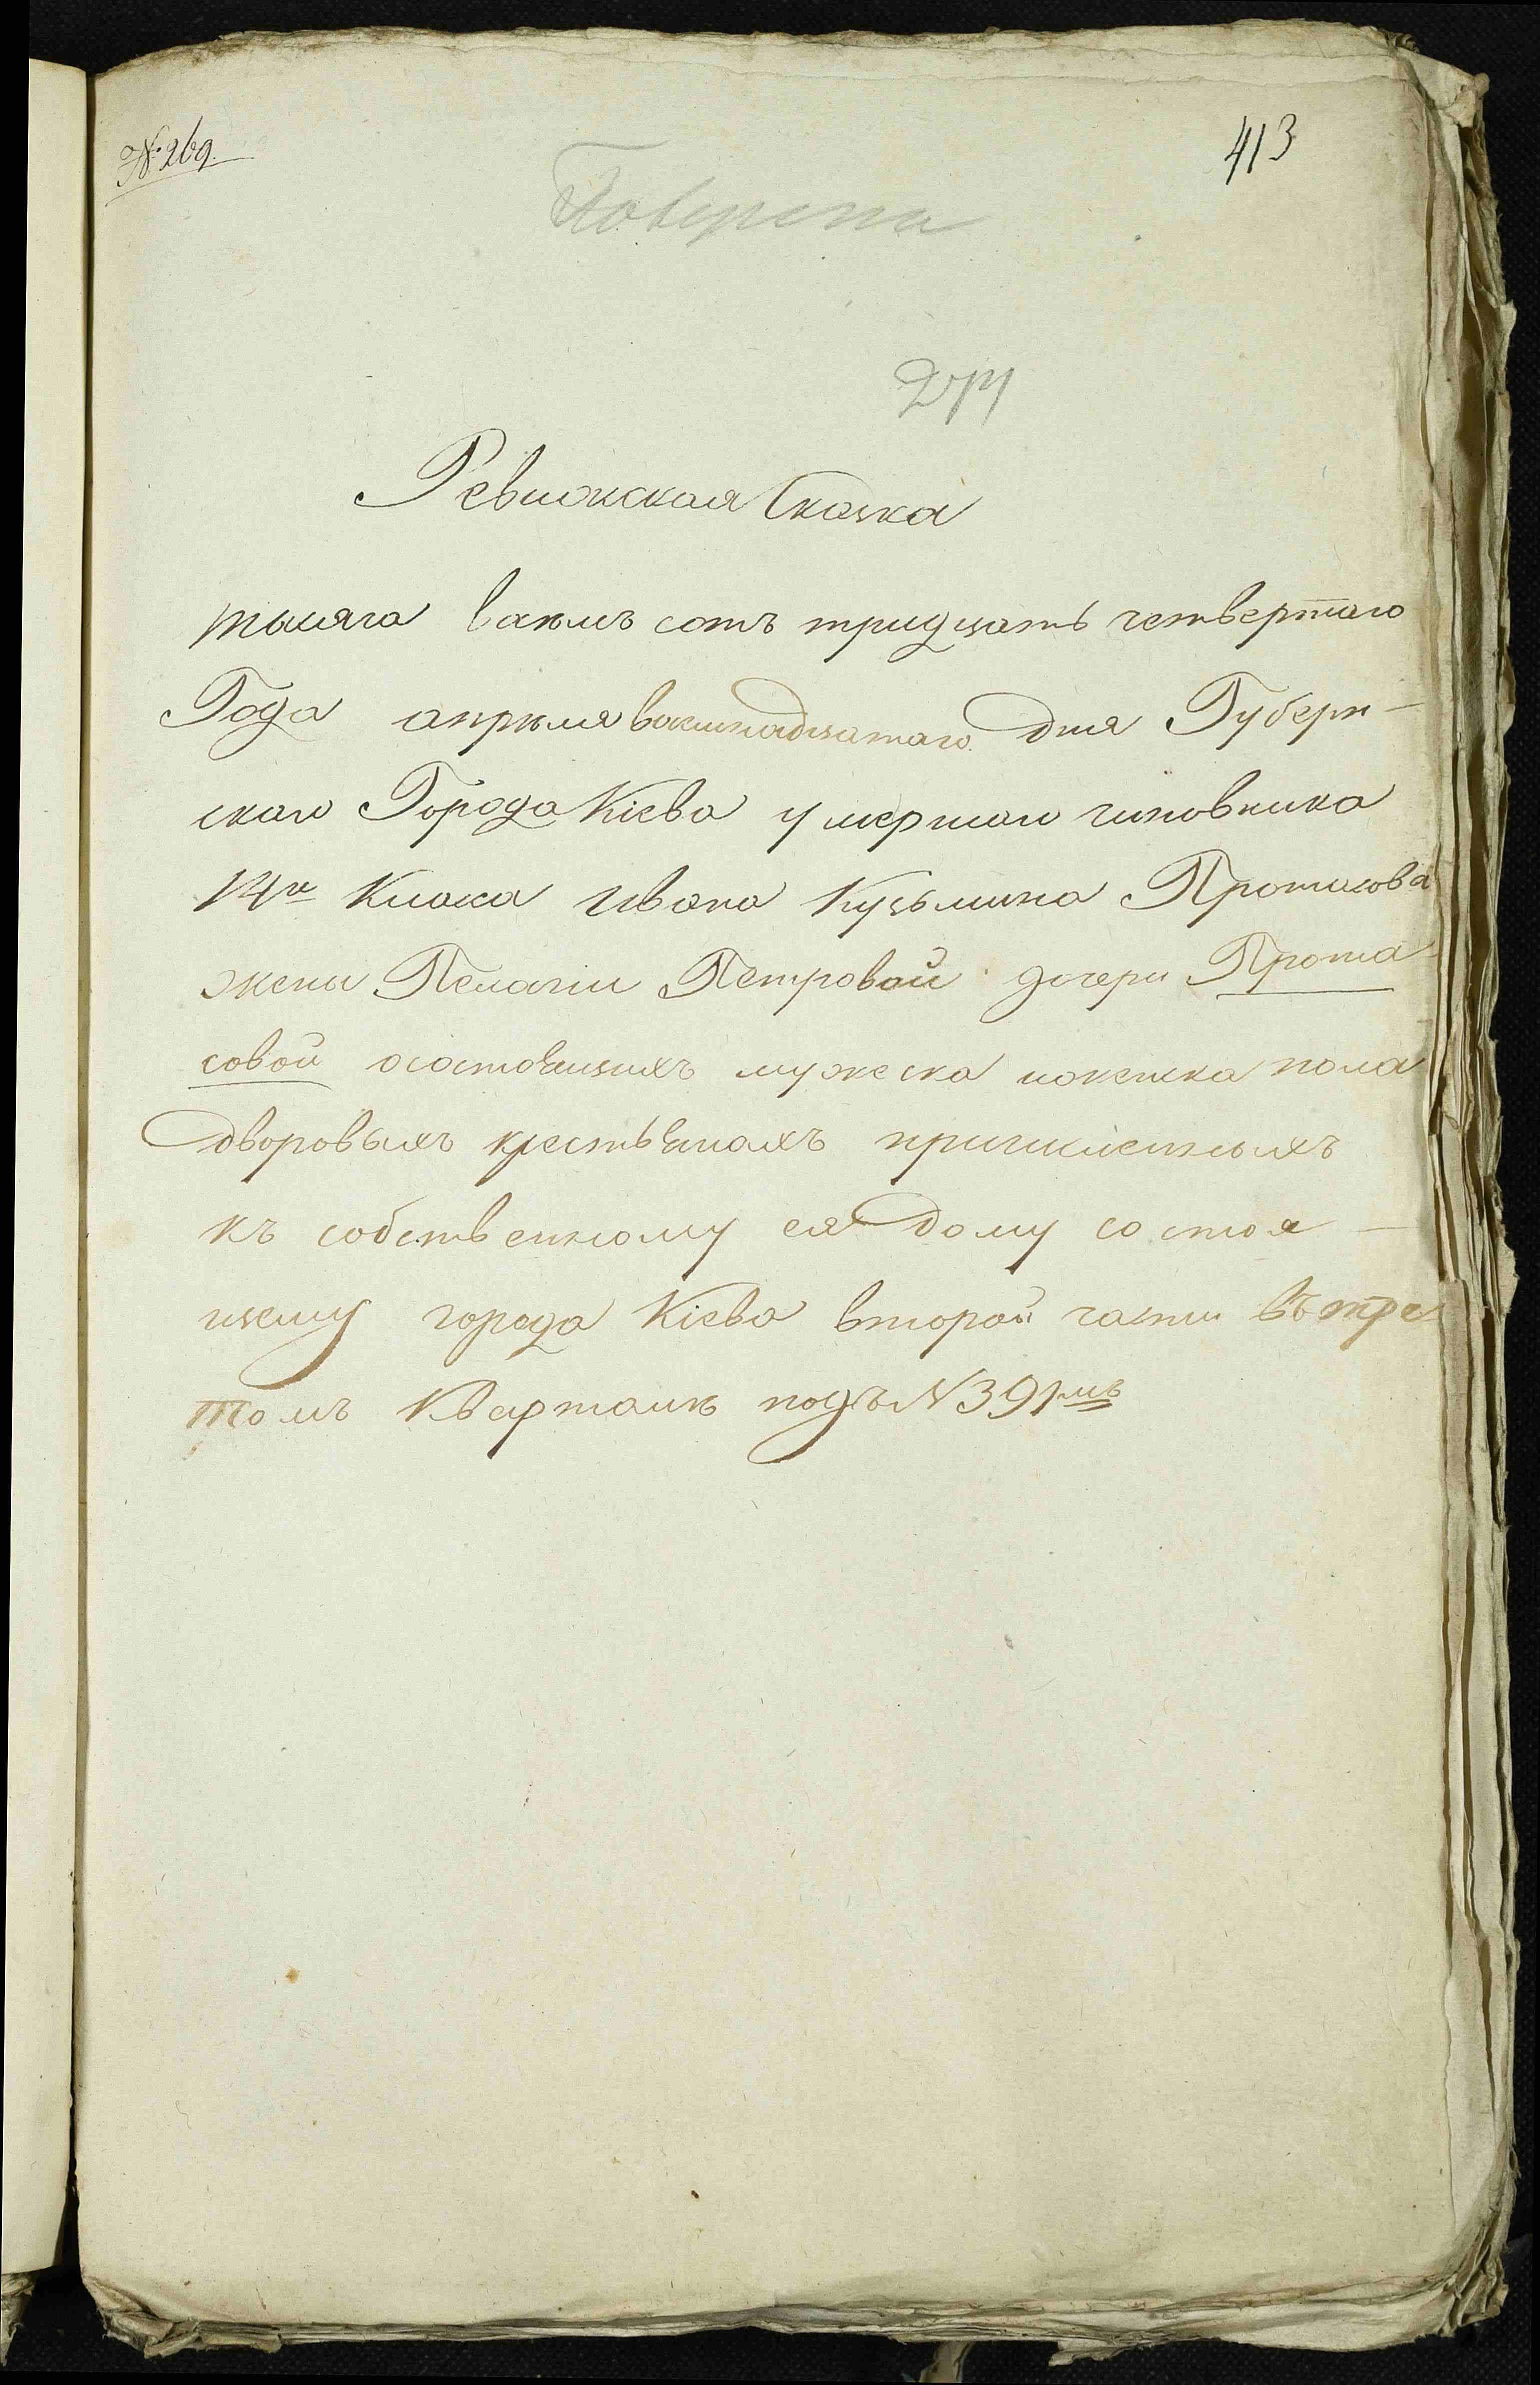 № 269.
413
Поверена
Ревижская Сказка
тысяча восемъ сотъ тридцать четвертаго
Года апреля восемнадцатаго дня Губерн-
скаго Города Кіева умершаго чиновника
14го Класса Ивана Кузьмина Протасова
жены Пелагіи Петровой дочери Прота-
совой осостоящихъ мужеска иженска пола
дворовыхъ крестьянахъ причисленныхъ
къ собственному ея дому состоя-
щему города Кіева второй части въ тре
томъ Кварталѣ подъ N 391мъ